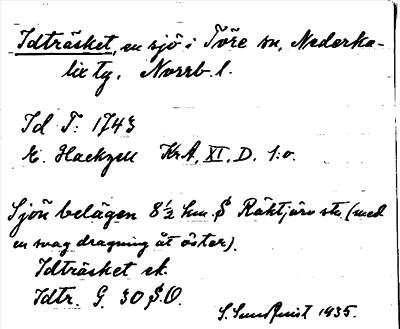 Idträsket, en sjö i Töre sn, Nederka-
lix tg, Norrb. l.
Id T: 1743
E. Hackzell KrA, XI, D. 1:o.
Sjön belägen 8½ km. S Räktjärv stn (med
en svag dragning åt öster).
Idträsket ek.
Idtr. G. 30 S.O.
S. Sundqvist 1935.